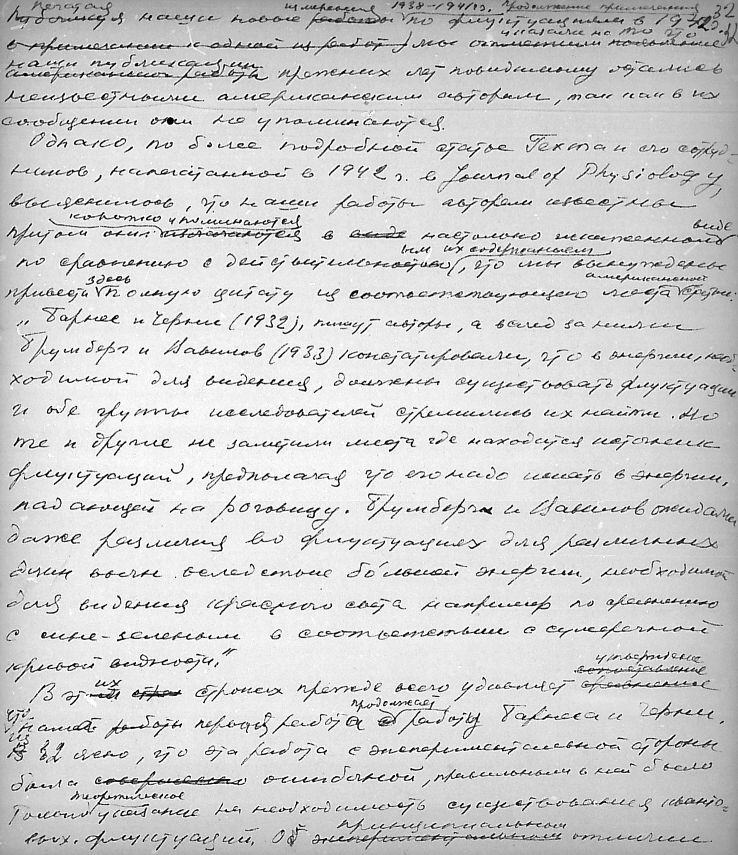 Печатая измерения 1938-1941 гг. Продолжение примечания 32
Публикуя наши новые работы по флуктуациям в 1942
в примечании к одной из работ) мы отметили указали на то что
наши публикации
американские работы прежних лет повидимому остались
неизвестными американским авторам, так как в их
сообщении они не упоминаются.
Однако, по более подробной статье Гехта и его сотруд-
ников, напечатанной в 1942 г. в Journal of Physiology,
выяснилось, что наши работы авторам известны
коротко упоминаются виде
притом они излагаются в виде настолько искаженном
ым их содержанием
по сравнению с действительностью, что мы вынуждены
здесь американской
привести полную цитату из соответствующего места статьи:
"Барнес и Черни (1932), пишут авторы, а вслед за ними
Брумберг и Вавилов (1933) констатировали, что в энергии, необ-
ходимой для видения, должны существовать флуктуации
и обе группы исследователей стремились их найти. Но
те и другие не заметили места где находится источник
флуктуаций, предполагая что его надо искать в энергии,
падающей на роговицу. Брумберг и Вавилов ожидали
даже различия во флуктуациях для различных
длин волн вследствие бо́льшей энергии, необходимой
для видения красного света например по сравнению
с сине-зеленым в соответствии с сумеречной
кривой видности."
их утверждение
В этих строках прежде всего удивляет сопоставление
что продолжает
наша работы первая работа работу Барнеса и Черни.
Из §2 ясно, что эта работа с экспериментальной стороны
была совершенно ошибочной, правильным в ней было
теоретическое
только указание на необходимость существования кванто-
принципиальном
вых флуктуаций. Об экспериментальном отличии